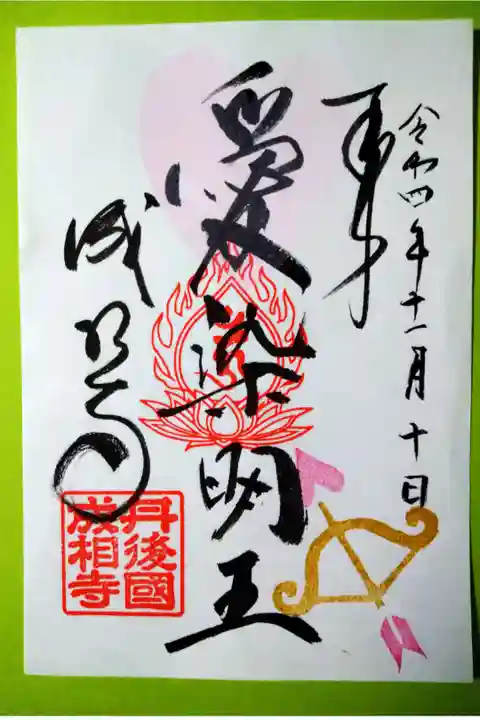 令和四年十一月十日
奉拝
愛染明王
成相寺
丹後國
成相寺